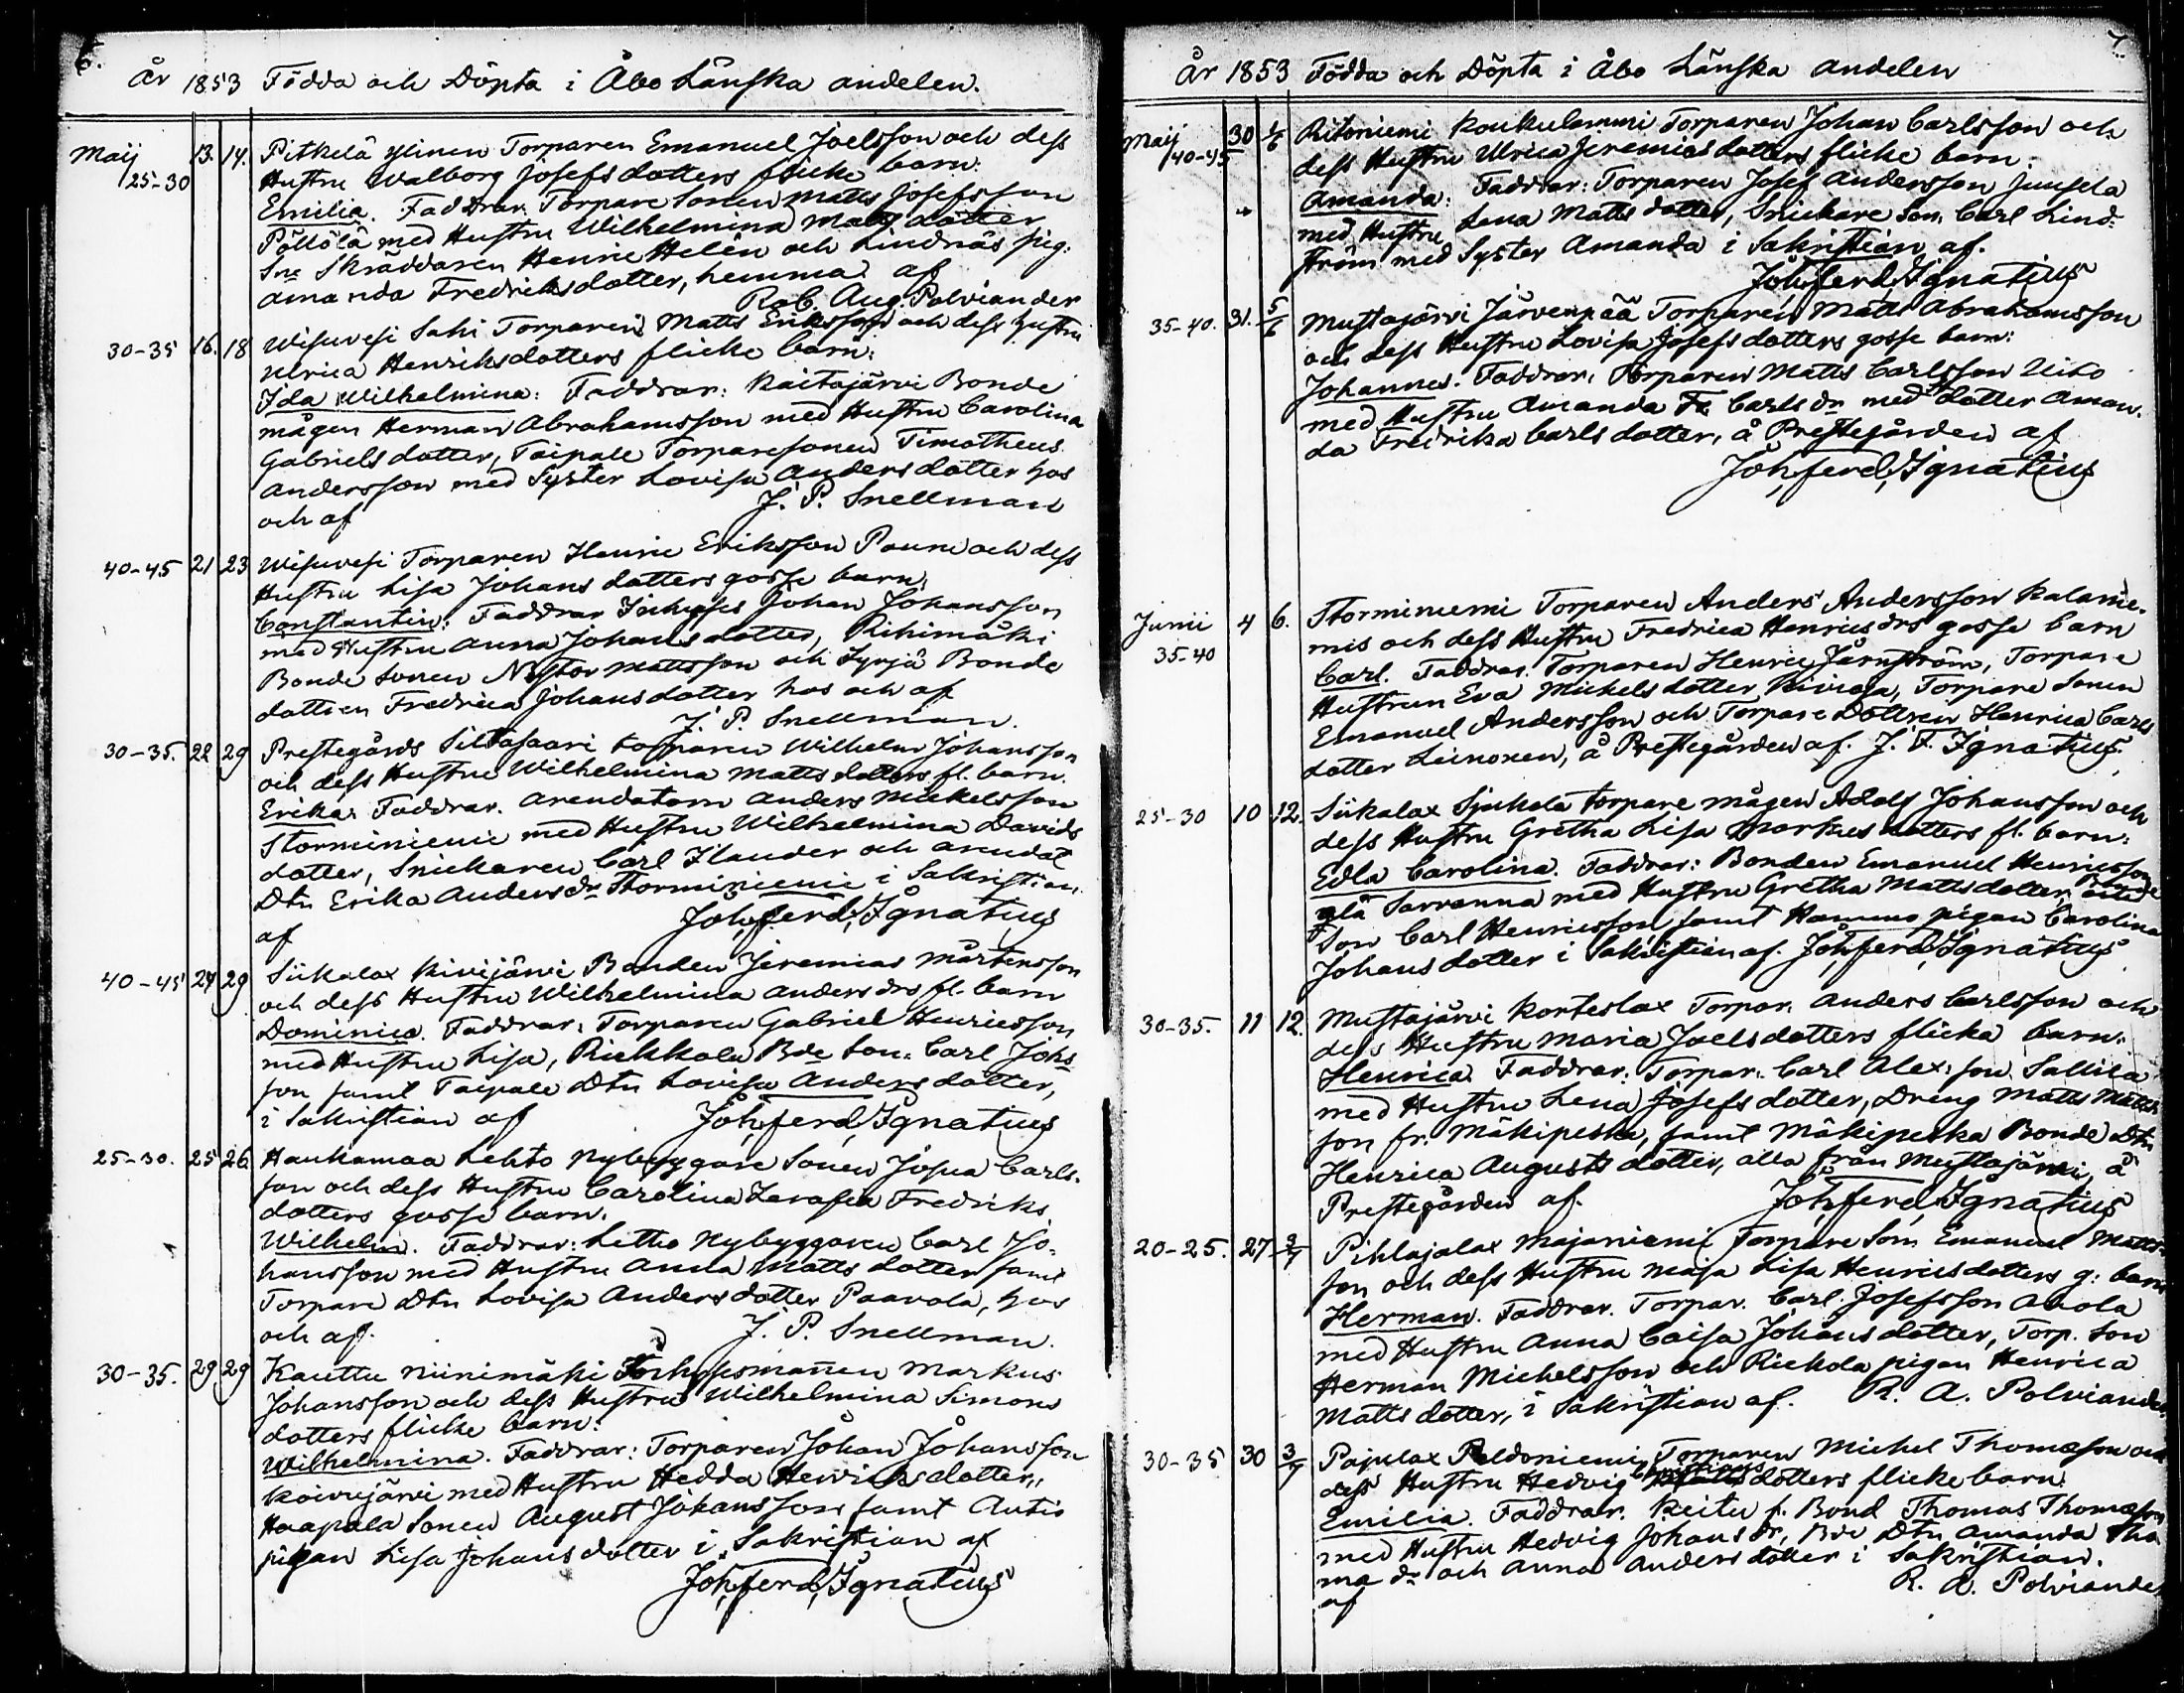 6.
År 1853 Födda och Döpta i Åbo Länska andelen.
Maij 13. 14. Pitkelä ylinen Torparen Emanuel Joelsson och dess
25-30 Hustru Walborg Josefsdotters flicke barn:
Emilia. Faddrar. Torpare Sonen Matts Josefsson
Pöllölä med Hustru Wilhelmina Matts dotter
Sne Skräddaren Henric Helén och Lindnäs pig:
Amanda Fredriksdotter, hemma af
Rob. Aug. Polviander
30-35 16. 18 Wisuvesi Sahi Torparen Matts Eriksson och dess hustru
Ulrica Henriksdotters flicke barn:
Ida Wilhelmina: Faddrar: Kaitajärvi Bonde
mågen Herman Abrahamsson med Hustru Carolina
Gabriels dotter, Taipale Torparesonen Timotheus
Andersson med Syster Lovisa Anders dotter hos
och af J. P. Snellman
40-45 21 23 Wisuvesi Torparen Henric Eriksson Paunu och dess
Hustru Lisa Johans dotters gosse barn,
Constantin: Faddrar Inhyses Johan Johansson
med Hustru Anna Johans dotter, Riihimäki
Bonde Sonen Nestor Mattsson och Syrjä Bonde
dottren Fredrica Johansdotter hos och af
J. P. Snellman.
30-35. 22 29 Prestegårds Siltasaari torparen Wilhelm Johansson
och dess Hustru Wilhelmina Matts dotters fl. barn.
Erika. Faddrar. Arendatorn Anders Mickelsson
Storminiemi med Hustru Wilhelmina Davids
dotter, Snickaren Carl Ilander och arendat
Dtn Erika Anders dr Storminiemi i Sakristian
af Joh. ferd, Ignatius
40-45 24 29 Siikalax Kivijärvi Bonden Jeremias Mårtensson
och dess Hustru Wilhelmina Anders drs fl. barn
Dominica. Faddrar: Torparen Gabriel Henricsson
med Hustru Lisa, Riekkala Bde Son: Carl Johs
son samt Taipale Dtn Lovisa Anders dotter,
i Sakristian af Joh, ferd, Ignatius
25-30. 25 26. Haukamaa Lehto Nybyggare Sonen Josua Carls-
son och dess Hustru Carolina Serafia Fredriks
dotters gosse barn.
Wilhelm. Faddrar: Lettho Nybyggaren Carl Jo-
hansson med Hustru Anna Matts dotter samt
Torpare Dtn Lovisa Anders dotter Paavola, hos
och af. J. P. Snellman.
30-35. 29 29 Kauttu Niinimäki Inhysesmannen Markus
Johansson och dess Hustru Wilhelmina Simons
dotters flicke barn:
Wilhelmina. Faddrar: Torparen Johan Johansson
Koivujärvi med Hustru Hedda Henricks dotter,
Haapala Sonen August Johansson samt Autio
pigan Lisa Johans dotter i Sakristian af
Joh, ferd, Ignatius
7.
År 1853 Födda och Döpta i Åbo Länska andelen
Maij 30 1/6 Ritoniemi Koukulammi Torparen Johan Carlsson och
40-45 dess Hustru Ulrica Jeremias dotters flicke barn:
Amanda: Faddrar: Torparen Josef Andersson Juusela
med Hustru Lena Matts dotter, Snickare Son: Carl Lind-
ström med Syster Amanda i Sakristian af.
Joh, ferd, Ignatius
35-40. 31. 5/6 Mustajärvi Järvenpää Torparen Matts Abrahamsson
och dess Hustru Lovisa Josefs dotters gosse barn:
Johannes. Faddrar: Torparen Matts Carlsson Uito
med Hustru Amanda Carls dr med dotter Aman-
da Fredrika Carls dotter, å Prestegården af
Joh, ferd, Ignatius
Junii 4 6. Storminiemi Torparen Anders Andersson Kalanie-
35-40 mis och dess Hustru Fredrica Henrics drs gosse barn
Carl. Faddrar. Torparen Henric Järnström, Torpare
Hustrun Eva Mickels dotter Kivioja, Torpare Sonen
Emanuel Andersson och Torpare Dottren Henrica Carls
dotter Leinonen, å Prestegården af. J. F. Ignatius.
25-30 10 12. Siikalax Sjukola torpare mågen Adolf Johansson och
dess Hustru Gretha Lisa Markus dotters fl. barn:
Edla Carolina. Faddrar: Bonden Emanuel Henricsson
Ylä Sarvanna med Hustru Gretha Matts dotter, Bonde
Son Carl Henricsson samt Hammo pigan Carolina
Johans dotter i Sakristian af. Joh, ferd, Ignatius
30-35. 11 12. Mustajärvi Korteslax Torpar. Anders Carlsson och
dess Hustru Maria Joels dotters flicka barn.
Henrica. Faddrar: Torpar. Carl Alex: son Sallila
med Hustru Lena Josefs dotter, Dreng Matts Matts
son fr. Mäkipeska, samt Mäkipeska Bonde Dtn
Henrica Augusts dotter, alla från Mustajärvi, å
Prestegården af. Joh, ferd, Ignatius
20-25. 27 3/7 Pihlajalax Majaniemi Torpare Son Emanuel Matts-
son och dess Hustru Maja Lisa Henricsdotters g: barn
Herman. Faddrar. Torpar. Carl. Josefsson Auola
med Hustru Anna Caisa Johans dotter, Torp. Son
Herman Michelsson och Riekola pigan Henrica
Matts dotter, i Sakristian af. R. A. Polviander.
30-35 30 3/7 Pajulax Peldoniemi Torparen Michel Thomæson och
dess Hustru Hedvig dotters flicke barn
Emilia. Faddrar. Keitu f. Bond Thomas Thomæson
med Hustru Hedvig Johans dr, Bde Dtn Amanda Tho
ma dr och Anna Anders dotter i Sakristian.
af R. A. Polviander